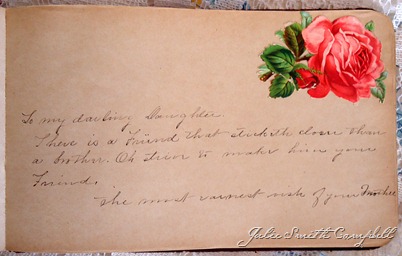 To my darling Daughter.
There is a Friend that sticketh closer than
a brother. Oh strive to make him your
Friend.
The most earnest wish of your Mother
Julie Smith Campbell